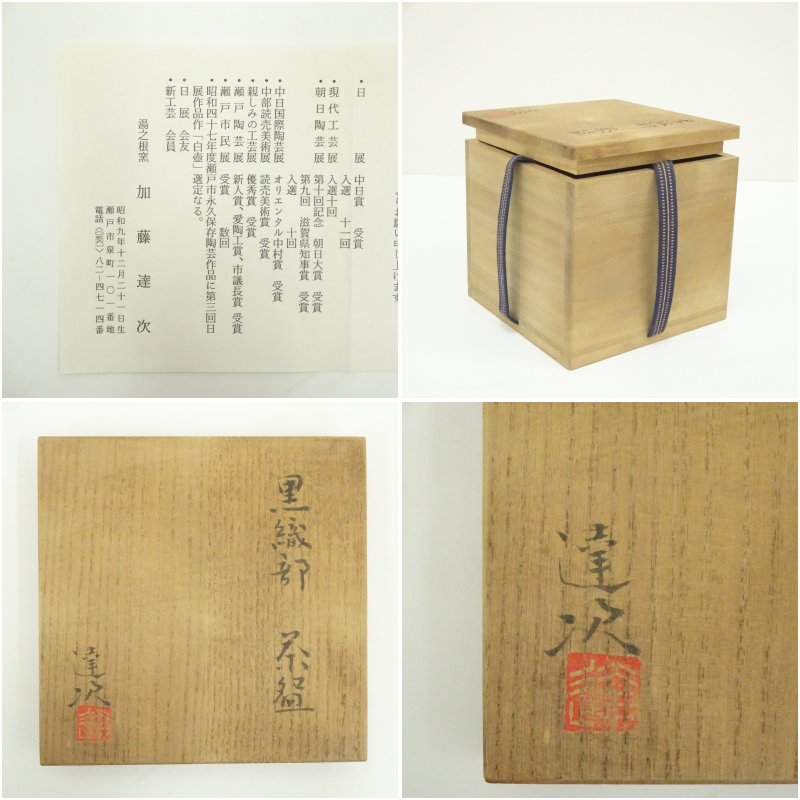 し上げます
・日展　中日賞　受賞
入選　十一回
・現代工芸展　入選十回
・朝日陶芸展　第十回記念　朝日大賞　受賞
第九回　滋賀県知事賞　受賞
入選　十回
・中日国際陶芸展　オリエンタル中村賞　受賞
・中部読売美術展　読売美術賞　受賞
・親しみの工芸展　優秀賞　受賞
・瀬戸陶芸展　新人賞、愛陶工賞、市議長賞　受賞
・瀬戸市民展　受賞　数回
・昭和四十七年度瀬戸市永久保存陶芸作品に第三回日
展作品作「白壺」選定なる。
・日展　会友
・新工芸　会員
湯之根窯　加藤達次
昭和九年十二月二十一日生
瀬戸市泉町一〇一番地
電話〈〉八二-四七一四番
黒織部　茶盌
達次
達次